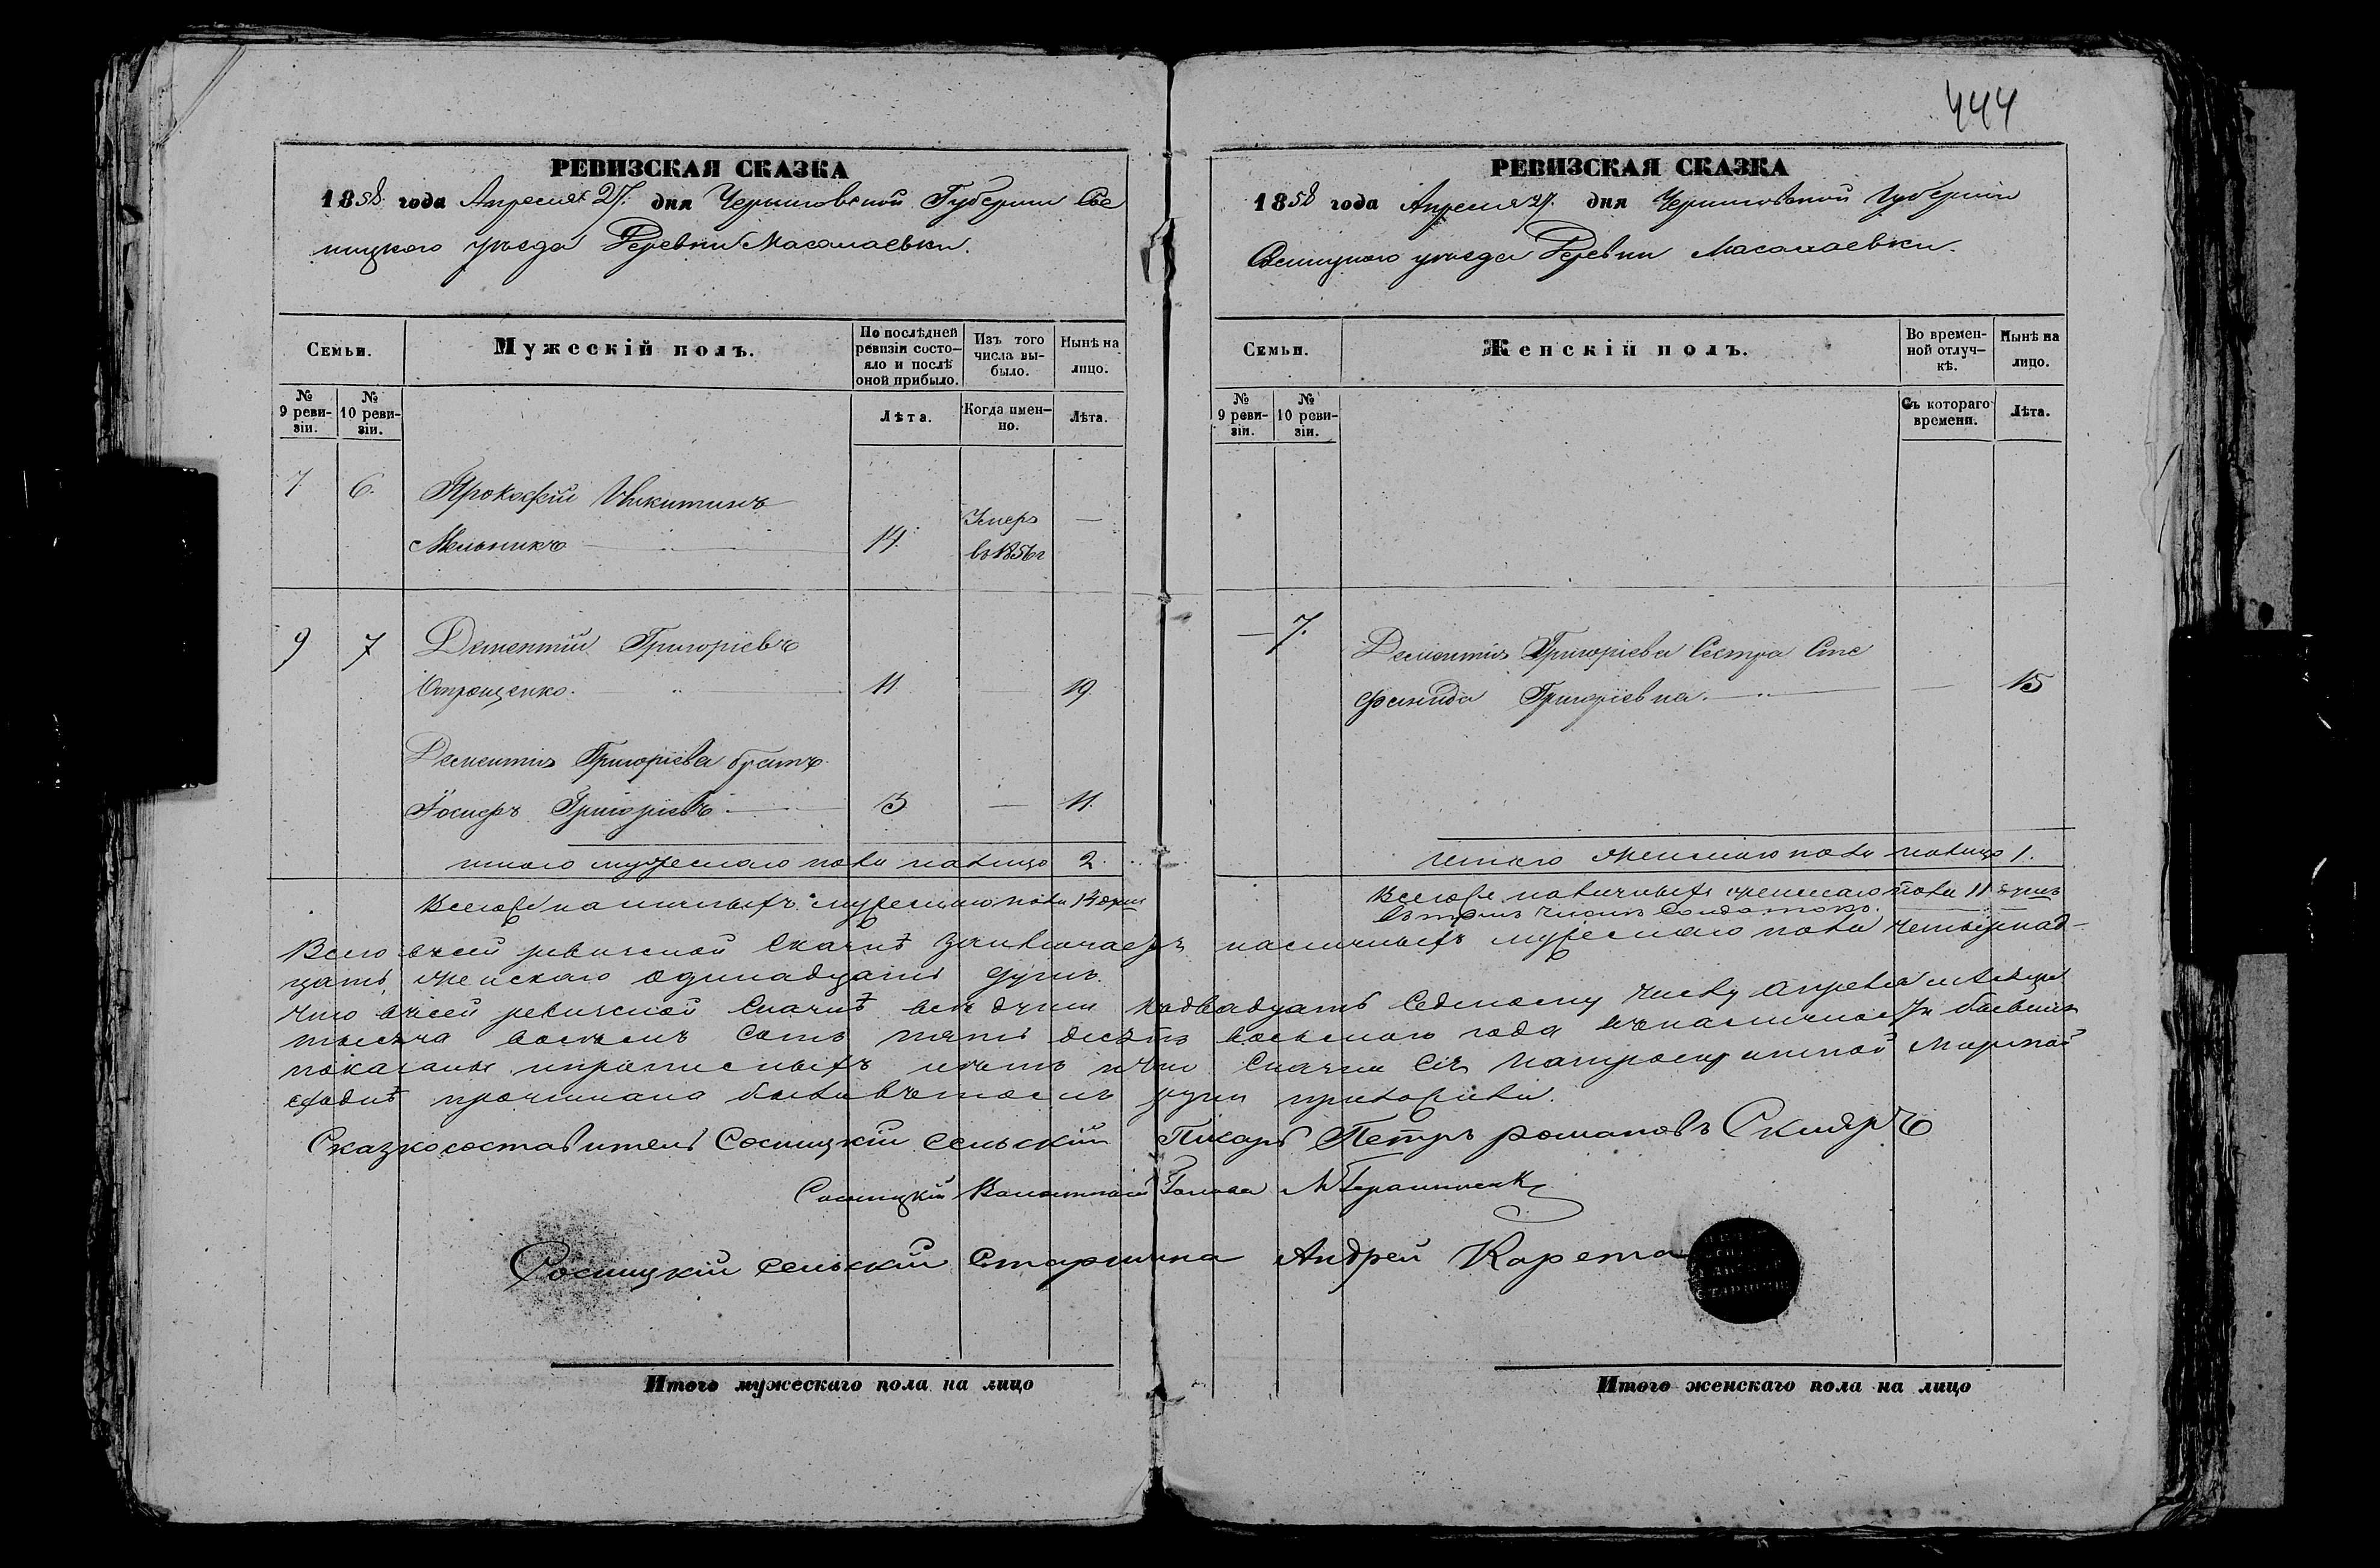 444
РЕВИЗСКАЯ СКАЗКА
1858 года Апреля 27 дня Черниговской Губернии Сос
ницкого уезда Деревни Масалаевки.
Семьи.
Мужескій полъ.
По послѣдней
ревизіи состо-
яло и послѣ
оной прибыло.
Изъ того
числа вы-
было.
Нынѣ на
лицо.
№
9 реви-
зіи.
№
10 реви-
зіи.
Лѣта.
Когда имен-
но.
Лѣта.
7 6. Прокофій Никитинъ
Мельникъ 14. Умеръ
въ 1856г
9 7 Дементій Григоріевъ
Отрощенко. 11 19
Дементія Григоріева братъ
Іосифъ Григоріевъ 3 11.
итого мужескаго пола налицо 2.
Всего же наличныхъ мужескаго пола 14 душ
РЕВИЗСКАЯ СКАЗКА
1858 года Апреля 27. дня Черниговской Губернии
Сосницкого уезда Деревни Масалаевки.
Семьи.
Женскій полъ.
Во времен-
ной отлуч-
кѣ.
Нынѣ на
лицо.
№
9 реви-
зіи.
№
10 реви-
зіи.
Съ котораго
времени.
Лѣта.
7. Дементія Григоріева Сестра Сте
фанида Григоріевна. 15
итого женскаго пола налицо 1.
Всего же наличныхъ женскаго пола 11 душъ
въ томъ числѣ Солдатокъ.
Всего въсей ревизской Сказкѣ заключается наличныхъ мужескаго пола четырнад-
цать, женскаго одинадцать душъ.
Что въсей ревизской Сказкѣ все души къ двадцать Седмому числу апреля месяца
тысяча восемь сотъ пять десятъ восьмаго года
показаны прописныхъ нетъ и что Сказка Сія мирской
сходкѣ прочитана была въ томъ руки приложили.
Сказкосоставитель Сосницкій сельскій Писарь Петръ романовъ Скляръ
Сосницкій Волостной Голова
Сосницкій сельскій Старшина Андрей Карета
Итого мужескаго пола на лицо
Итого женскаго пола на лицо